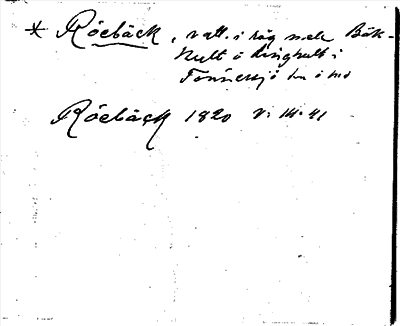 * Röebäck, vatt. i råg mela Bök-
hult o Ringhult i
Tönnersjö sn o hd
Röebäck 1820 V: 14: 41